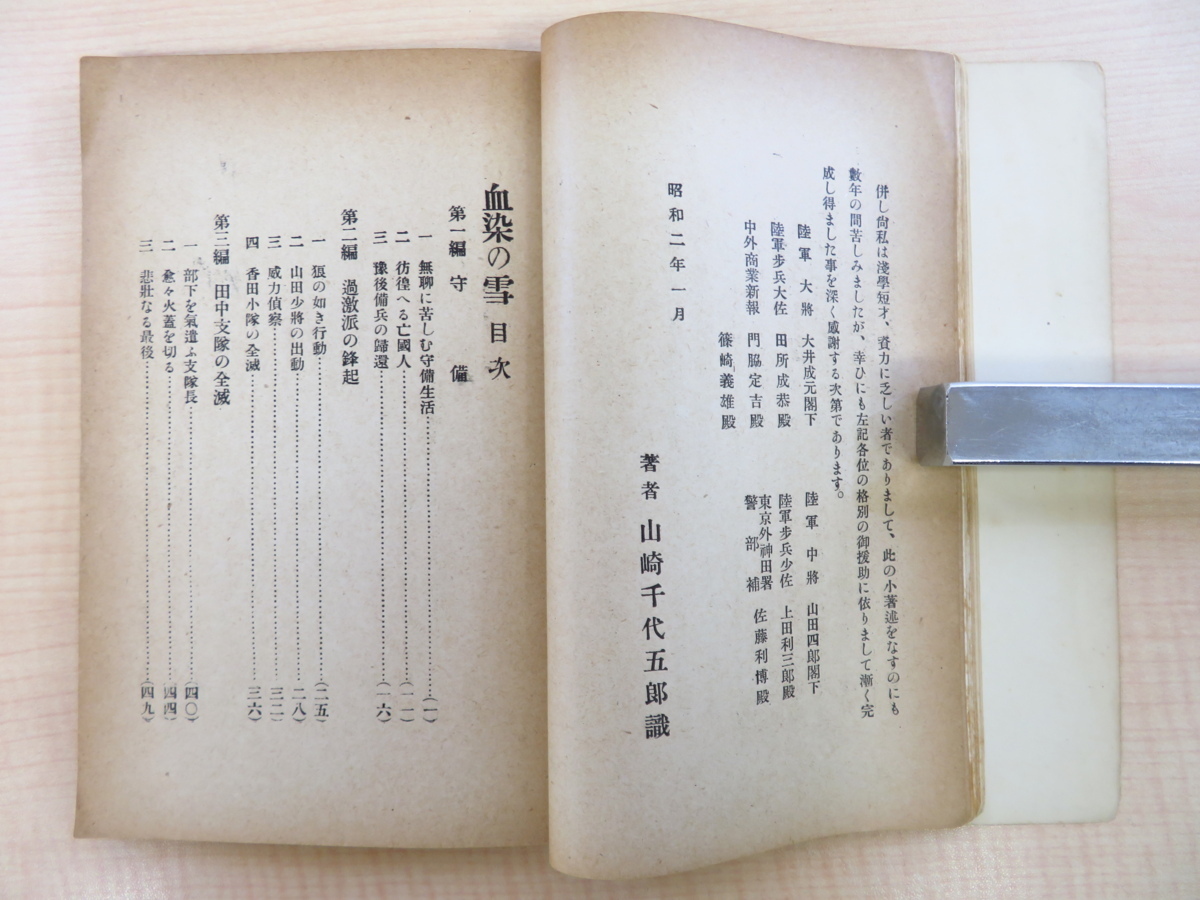 併し尙私は淺學短才、資力に乏しい者でありまして、此の小著述をなすのにも
數年の間苦しみましたが、幸ひにも左記各位の格別の御援助に依りまして漸く完
成し得ました事を深く感謝する次第であります。
陸軍大將 大井成元閣下
陸軍中將 山田四郎閣下
陸軍步兵大佐 田所成恭殿
陸軍步兵少佐 上田利三郎殿
中外商業新報 門脇定吉殿
東京外神田署
警部補 佐藤利博殿
篠崎義雄殿
昭和二年一月
著者 山崎千代五郎識
血染の雪 目次
第一編 守備
一 無聊に苦しむ守備生活……(一)
二 彷徨へる亡國人……(一一)
三 豫後備兵の歸還……(一六)
第二編 過激派の鋒起
一 狼の如き行動……(二五)
二 山田少將の出動……二八)
三 威力偵察……三二)
四 香田小隊の全滅……三六)
第三編 田中支隊の全滅
一 部下を氣遣ふ支隊長……(四〇)
二 愈々火蓋を切る……(四四)
三 悲壯なる最後……(四九)